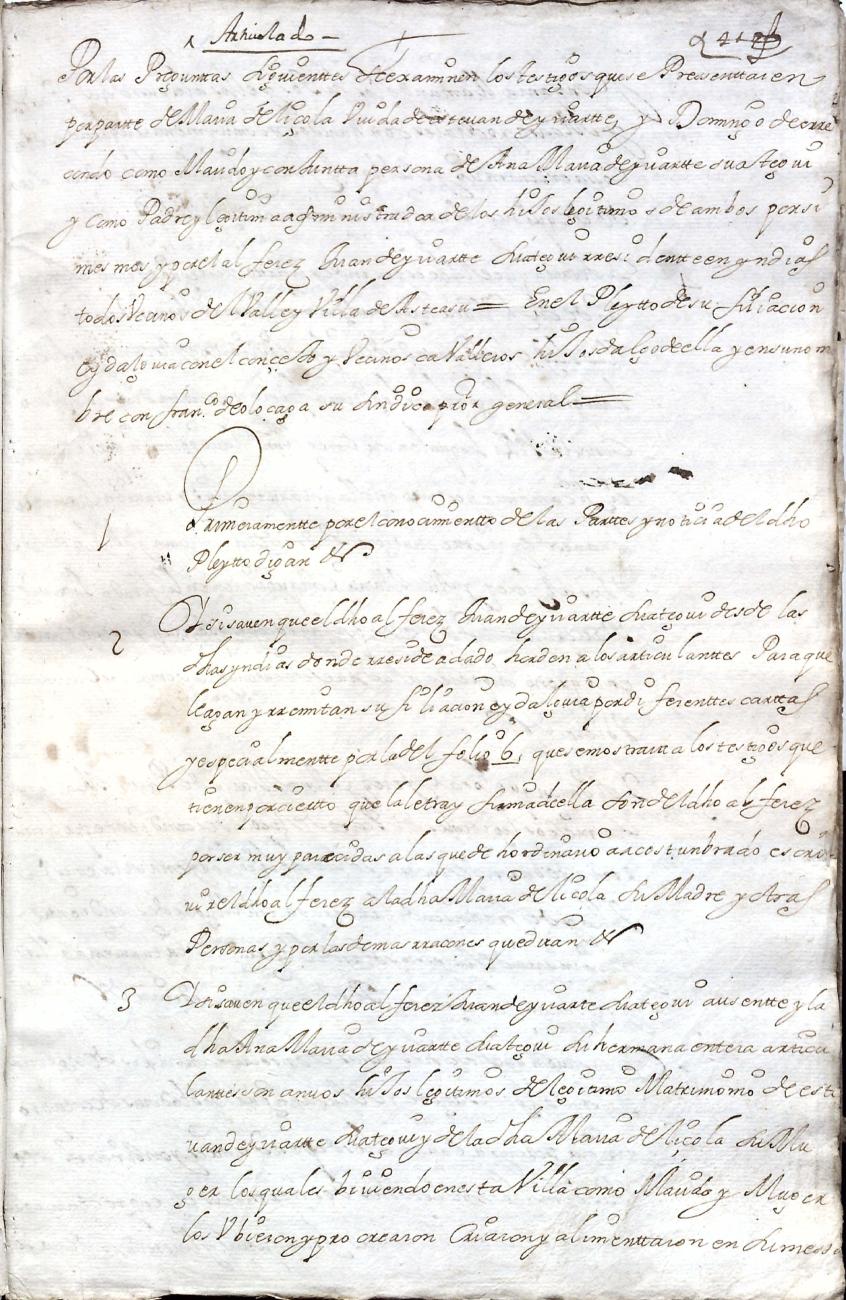 Articulado
Por las Preguntas siguienttes se examinen los testigos que se Presenttaren
por partte de Maria de liçola Viuda de estevan de yriartte, y Domingo de erre
condo como Marido y conJuntta persona de Ana Maria de yriartte suasegui
y como Padre y legitimo administrador de los hiJos legitimos de ambos por si
mesmos y por el alferez Juan de yriartte suasegui rresidentte en yndias
todos Vecinos del Valle y Villa de Asteasu = En el Pleytto de su filiacion
eydalguia con el conçeJo y Vecinos caValleros hiJos dalgo de ella y en su nom
bre con fran.co de olocaga su sindico pror general =
1 Primeramentte por el conocimientto de las Parttes y noticia del dho
Pleytto digan &
2 Yten si saven que el dho alferez Juan de yriartte suasegui desde las
dhas yndias donde rreside a dado horden a los articulanttes Para que
hagan y rremitan su filiacion eydalguia por diferenttes carttas
y especialmentte por la del folio 6, que se mostrara a los testigos que
tienen por ciertto que la letra y firma de ella son del dho alferez
por ser muy parecidas a las que de hordinario a acostunbrado escri
uir el dho alferez a la dha Maria de liçola su Madre y otras
Personas y por las demas rraçones que diran &
3 Yten si saven que el dho alferez Juan de yriarte suasegui ausentte y la
dha Ana Maria de yriartte suasegui su hermana entera articu
lanttes son anvos hiJos legitimos de legitimo Matrimonio de este
uan de yriartte suasegui y de la dha Maria de liçola su Mu
ger los quales biuiendo en esta Villa como Marido y Muger
los Vbieron y procrearon Criaron y alimenttaron en su messa